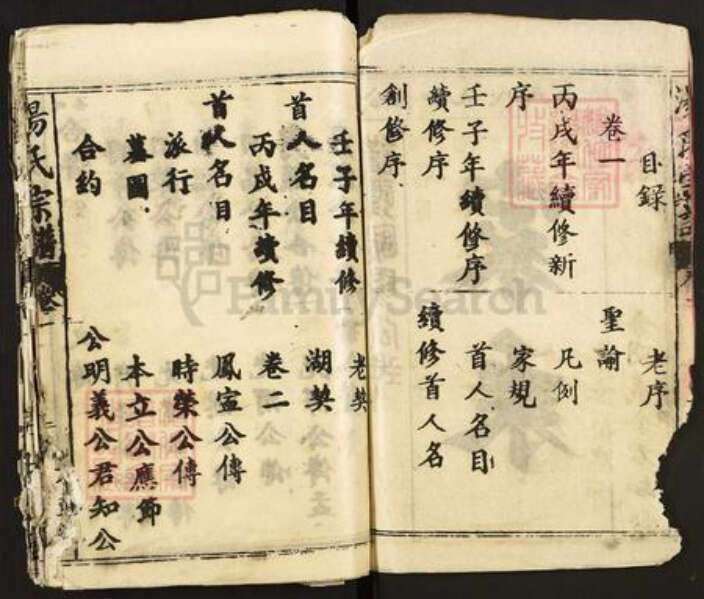 目録 老序
卷一 聖諭
丙戌年續修新 凡例
序 家規
壬子年續修序 首人名目
續修序 續修首人名
創修序
壬子年續修 老契
首人名目 湖契
丙戌年續修 卷二
首人名目 鳳宣公傳
派行 時榮公傳
墓圖 本立公應節
合約 公明義公君知公
湯氏宗譜 卷一
FamilySearch